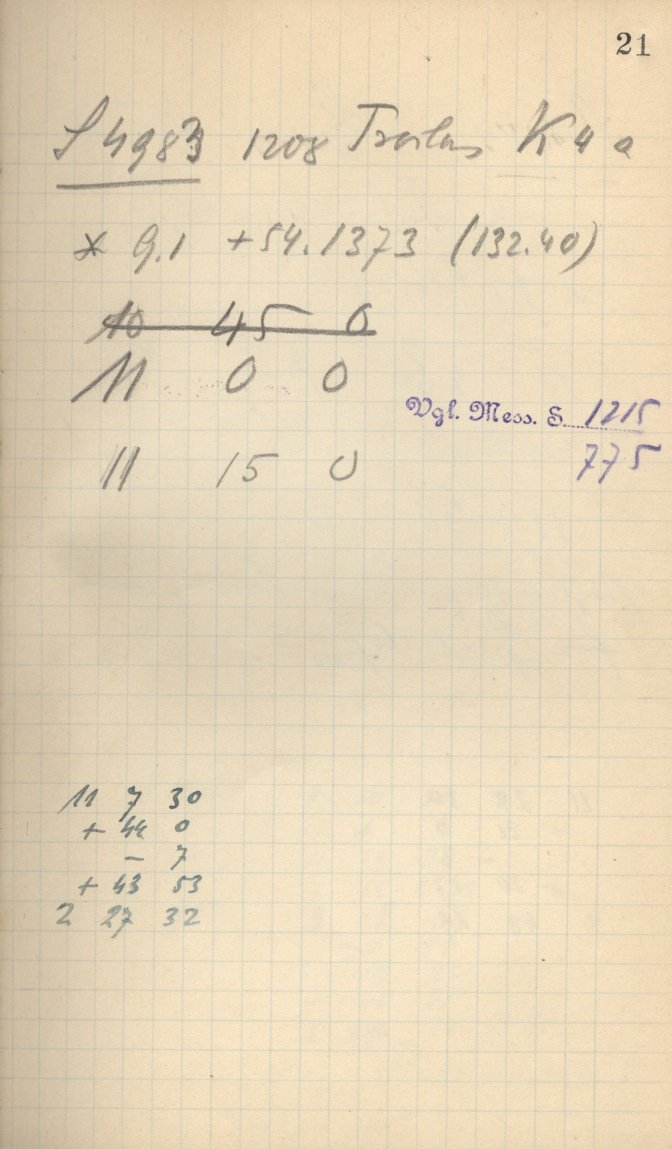 21
S 4983 1208 Troilus K 4 a
* 9.1 +54.1373 (132.40)
10 45 0
11 0 0
Vgl. Mess. S. 1215
775
11 15 0
11 7 30
+ 44 0
- 7
+ 43 53
2 27 32